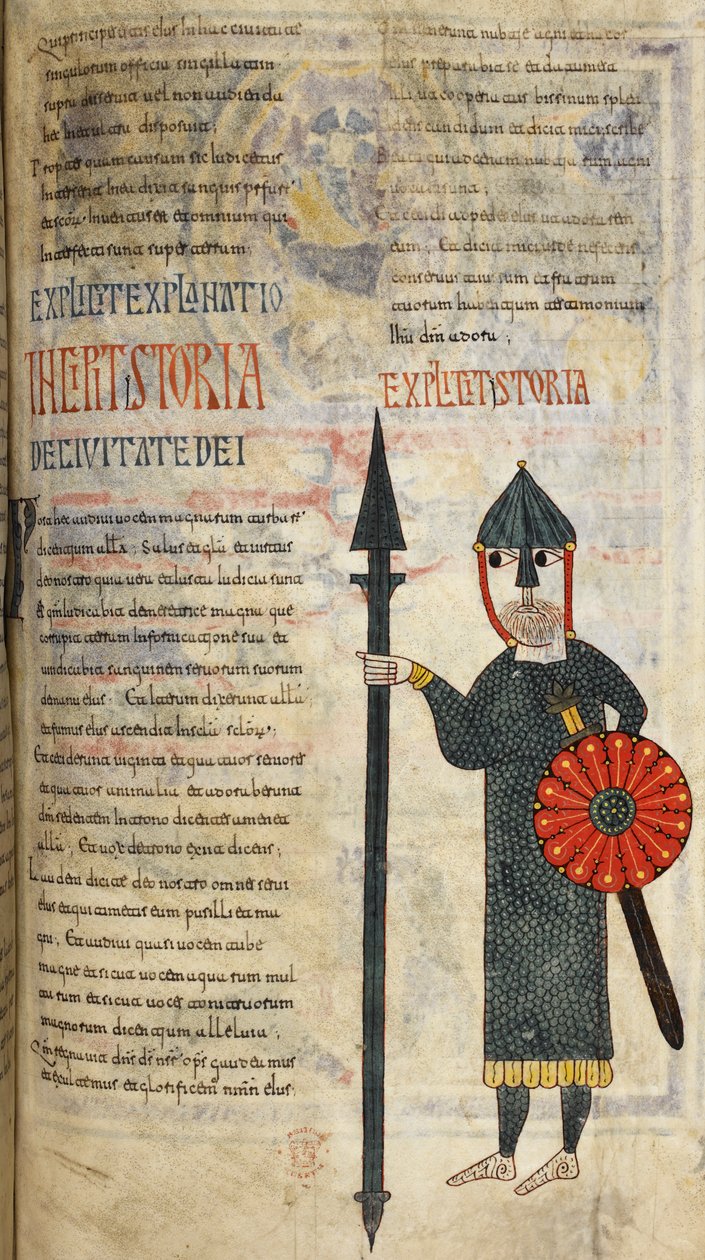 singulorum officia singillatim
supra disserui vel non audienda
hec disposuit;
Propter quam causam sic
in ea dixit sanguis profetar
et scorum inventus est et omnium qui
interfecti sunt super terram;
EXPLICIT EXPLANATIO
INCIPIT ISTORIA
DE CIVITATE DEI
Post hec audivi vocem magnam turbar
dicentium allla; Salus et gla et virtus
deo nostro quia vera et iusta iudicia sunt
Et qm iudicabit de meretrice magna que
corrupit terram in fornicatione sua et
vindicabit sanguinem servorum suorum
de manu eius. Et iterum dixerunt allla;
et fumus eius ascendit in scla sclor;
Et ceciderunt viginti et quatuor seniores
et quatuor animalia et adoraberunt
dnm sedentem in trono dicentes amen et
allla; Et vox de trono exivit dicens;
Laudem dicite deo nostro omnes servi
eius et qui timetis eum pusilli et ma
gni; Et audivi quasi vocem tube
magne et sicut vocem aquarum mul
tarum et sicut voces tonitruorum
magnorum dicentium alleluia;
Qm regnavit dns ds nsr ops gaudeamus
et exultemus et glorificem nmn eius
Qm venerunt nubtie agni et uxor
eius preparabit se et datum est
illi ut cooperiatur bissinum splen
dens candidum et dicit mici scribe
Beati qui ad cenam nubtiarum agni
vocati sunt;
Et cecidi ad pedes eius ut adorarem
eum; Et dicit mici vide ne feceris
conservus tuus sum et fratrum
tuorum habentium testimonium
Ihu dnm adora;
EXPLICIT ISTORIA